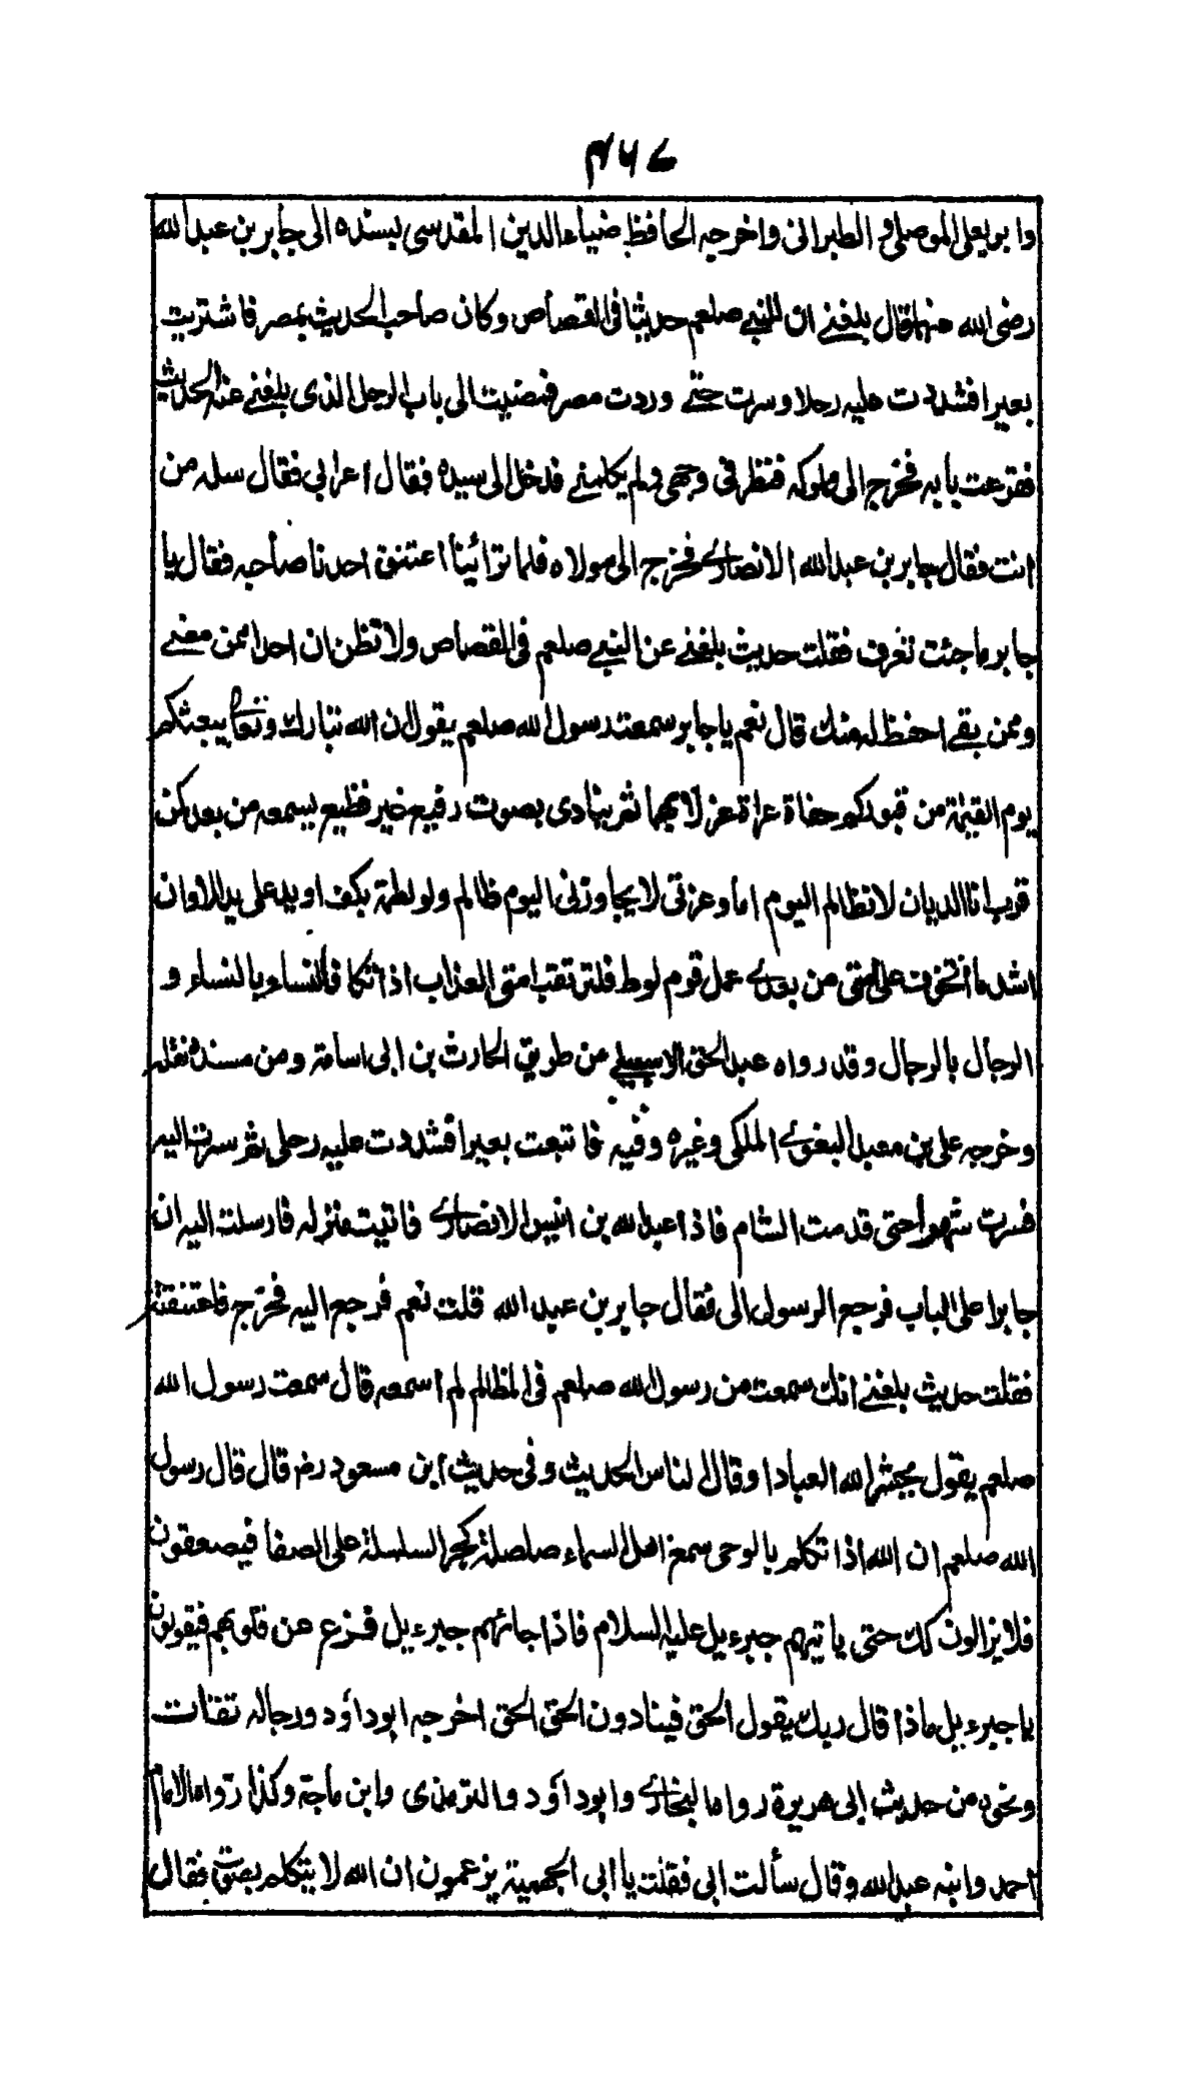 ۴۶۷
وابو يعلى الموصلي و الطبراني واخرجه الحافظ ضياء الدين المقدسي بسنده الى جابر بن عبد الله
رضى الله عنهما قال بلغني ان للنبي صلعم حديثا فى القصاص وكان صاحب الحديث بمصر فاشتريت
بعيرا فشددت عليه رحلا وسرت حتى وردت مصر فمضيت الى باب الرجل الذى بلغني عنه الحديث
فقرعت بابه فخرج الى مملوكه فنظر فى وجهى ولم يكلمني فدخل الى سيده فقال اعرابي فقال سله من
انت فقال جابر بن عبد الله الانصاري فخرج الى مولاه فلما ترائينا اعتنق احدنا صاحبه فقال يا
جابر ما جئت تعرف فقلت حديث بلغني عن النبي صلعم فى القصاص ولا تظن ان احدا ممن مضى
وممن بقى احفظ له منك قال نعم يا جابر سمعت رسول الله صلعم يقول ان الله تبارك وتعالى يبعثكم
يوم القيمة من قبوركم حفاة عراة غرلا بهما ثم ينادى بصوت رفيع غير فظيع يسمعه من بعد كمن
قرب انا الديان لا تظالم اليوم اما وعزتى لا يجاوزنى اليوم ظالم ولو لطمة بكف او يد على يد الا وان
اشد ما اتخوف على امتى من بعدي عمل قوم لوط فلترتقب امتى العذاب اذا تكافأ النساء بالنساء و
الرجال بالرجال وقد رواه عبد الحق الاسبيلي من طريق الحارث بن ابى اسامة ومن مسنده نقله
وخرجه على بن معبد البغوي الملكى وغيره وفيه فابتعت بعيرا فشددت عليه رحلى ثم سرت اليه
فسرت شهرا حتى قدمت الشام فاذا عبد الله بن انيس الانصاري فاتيت منزله فارسلت اليه ان
جابرا على الباب فرجع الرسول الى فقال جابر بن عبد الله قلت نعم فرجع اليه فخرج فاعتنقته
فقلت حديث بلغني انك سمعت من رسول الله صلعم فى المظالم لم اسمعه قال سمعت رسول الله
صلعم يقول يحشر الله العباد او قال الناس الحديث وفى حديث ابن مسعود رض قال قال رسول
الله صلعم ان الله اذا تكلم بالوحى سمع اهل السماء صلصلة كجر السلسلة على الصفا فيصعقون
فلا يزالون كك حتى ياتيهم جبرءيل عليه السلام فاذا جائهم جبرءيل فزع عن قلوبهم فيقولون
يا جبرءيل ماذا قال ربك يقول الحق فينادون الحق الحق اخرجه ابوداؤد ورجاله ثقات
ونحوه من حديث ابى هريرة رواه البخاري وابوداؤد والترمذى وابن ماجة وكذا رواه الامام
احمد وابنه عبد الله وقال سألت ابى فقلت يا ابى الجهمية يزعمون ان الله لا يتكلم بصوت فقال